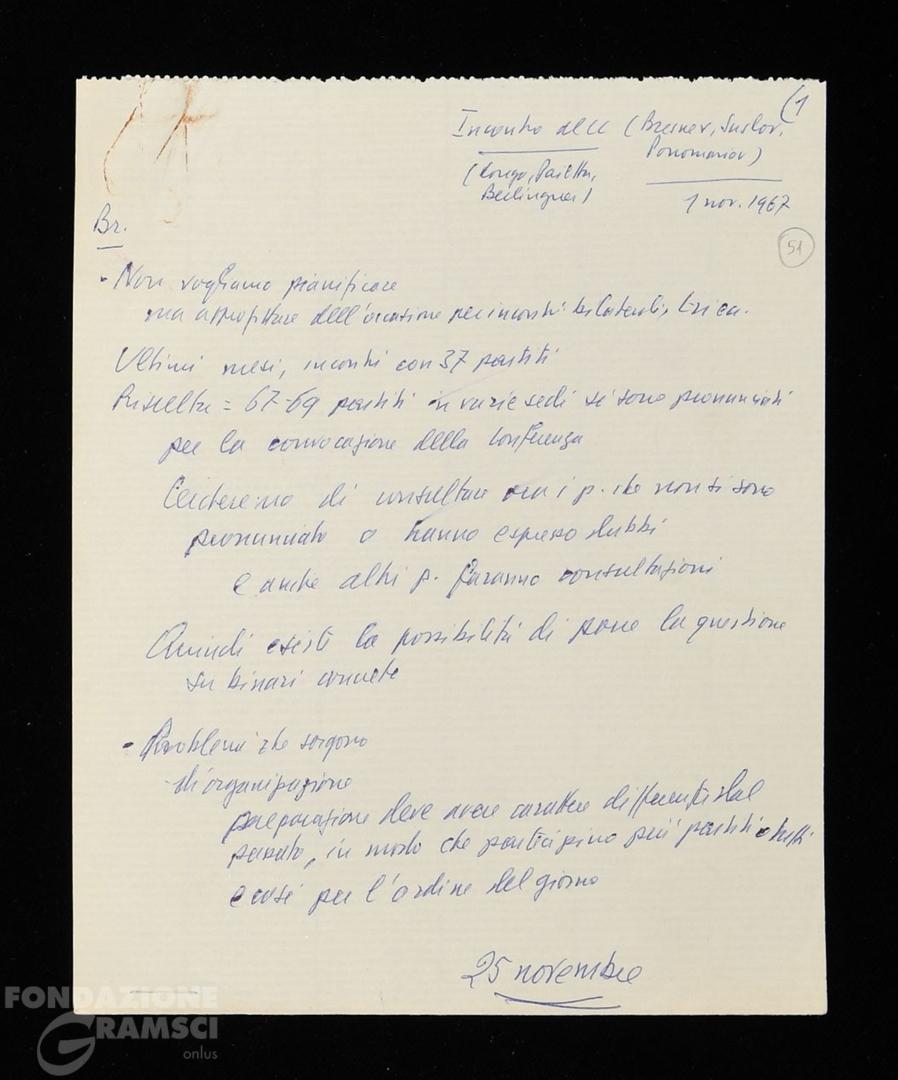 (1
Incontro al CC (Bresnev, Suslov,
Ponomariov)
(Longo, Paietta,
Berlinguer)
1 nov. 1967
51
Br.
- Non vogliamo pianificare
ma approfittare dell'occasione per incontri bilaterali,
Ultimi mesi, incontri con 37 partiti
Risulta = 67-69 partiti in varie sedi si sono pronunciati
per la convocazione della conferenza
Cercheremo di consultare ora i p. che non si sono
pronunciato o hanno espresso dubbi
e anche altri p. faranno consultazioni
Quindi esiste la possibilità di porre la questione
su binari concreti
- Problemi che sorgono
- di organizzazione
preparazione deve avere carattere differente dal
passato, in modo che partecipino più partiti o tutti
e così per l'ordine del giorno
25 novembre
FONDAZIONE
GRAMSCI
onlus